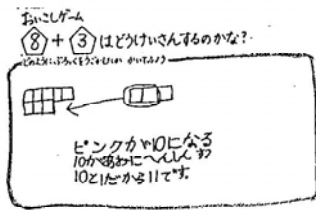 おいこしゲーム
8+3はどうけいさんするのかな?
どのようにぶろっくをうごかしたか かいてみよう
ピンクが10になる
10があおにへんしんする
10と1だから11です。